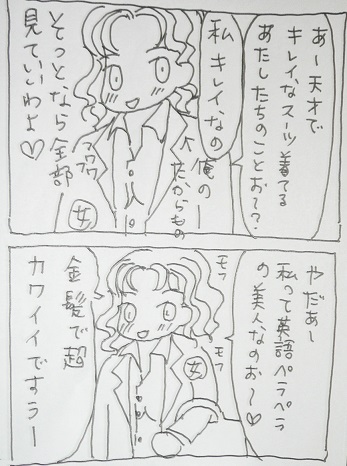 あー天才で
キレイなスーツ着てる
あたしたちのことお〜?
私キレイなの
俺の
たからもの
そっとなら全部
見ていいわよ♡
フワフワ
女
やだぁ〜
私って英語ペラペラ
の美人なのお〜♡
モフ
モフ
女
金髪で超
カワイイですぅー